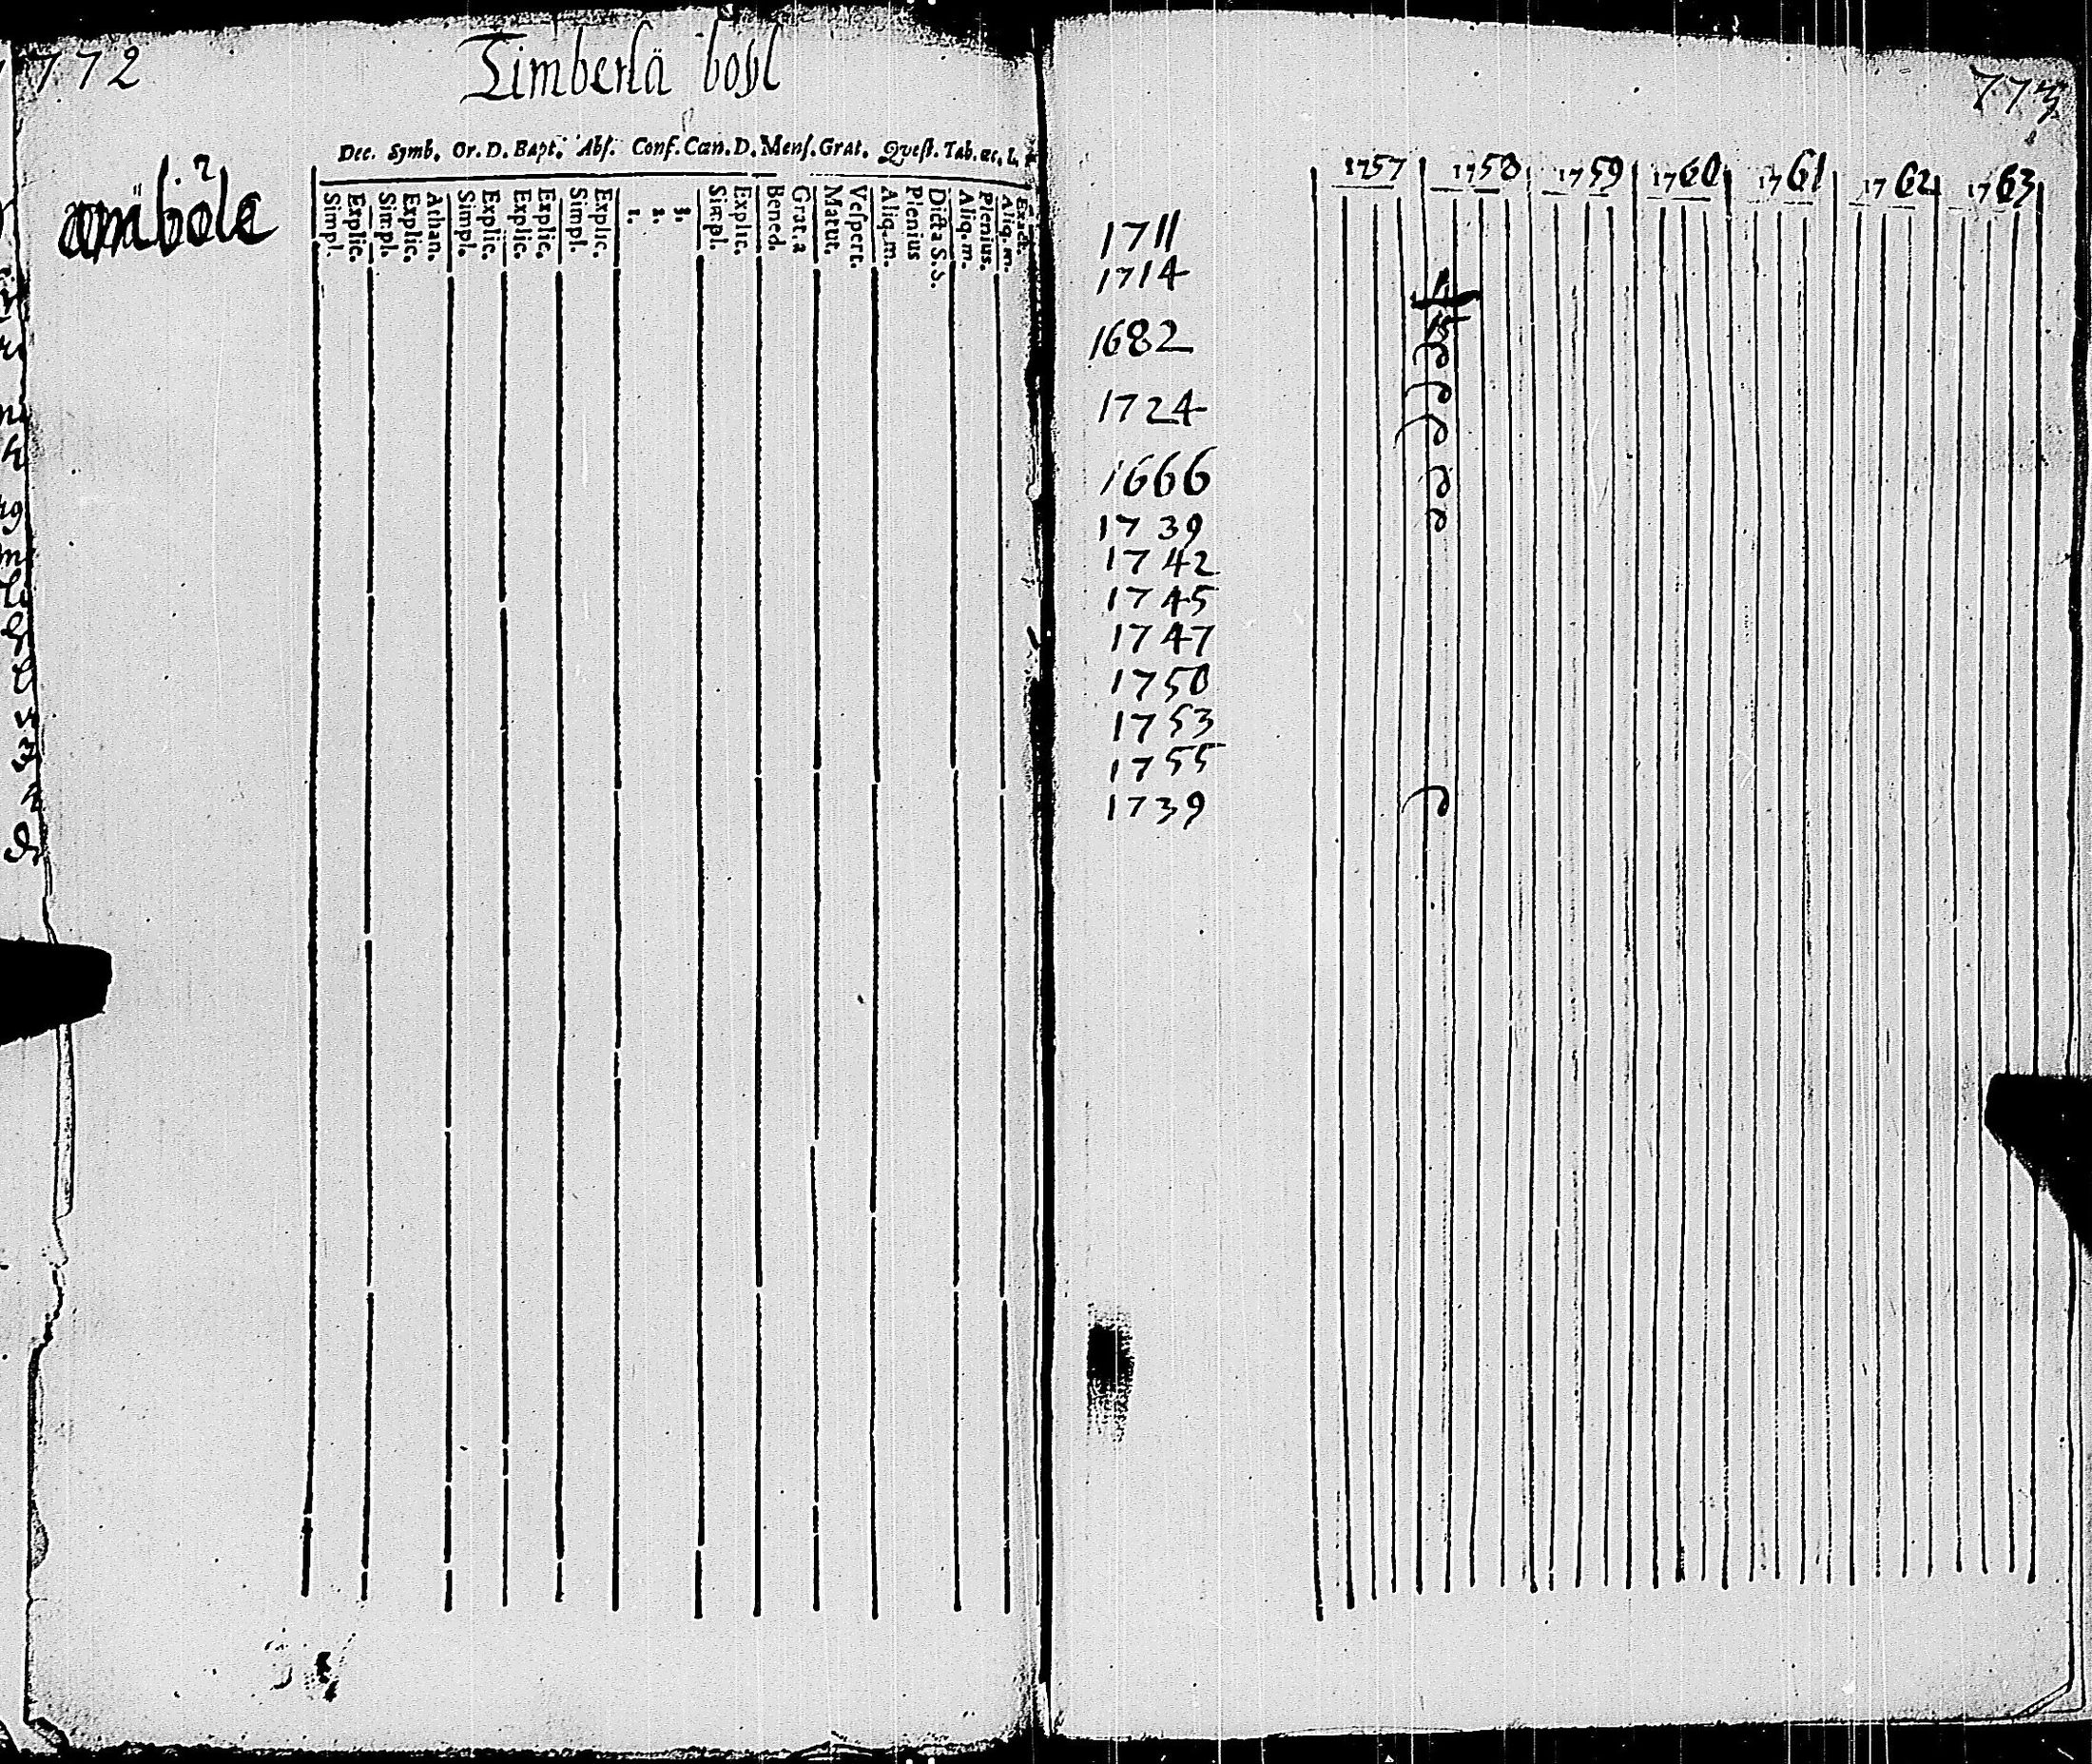 772
Timberlä böyl
Dec. Symb. Or. D. Bapt. Abs. Conf. Cœn. D. Mens. Grat. Quest. Tab. œc.
Simpl. Explic. Simpl. Explic. Athan. Simpl. Explic. Explic. Explic. Simpl. Explic. 1. 2. 3. Simpl. Explic. Bened. Grat. a Matut. Vespert. Aliq. m. Plenius Dicta S. S. Aliq. m. Plenius. Aliq. m. Exact.
773
1757 1758 1759 1760 1761 1762 1763
1711
1714
1682
1724
1666
1739
1742
1745
1747
1750
1753
1755
1739